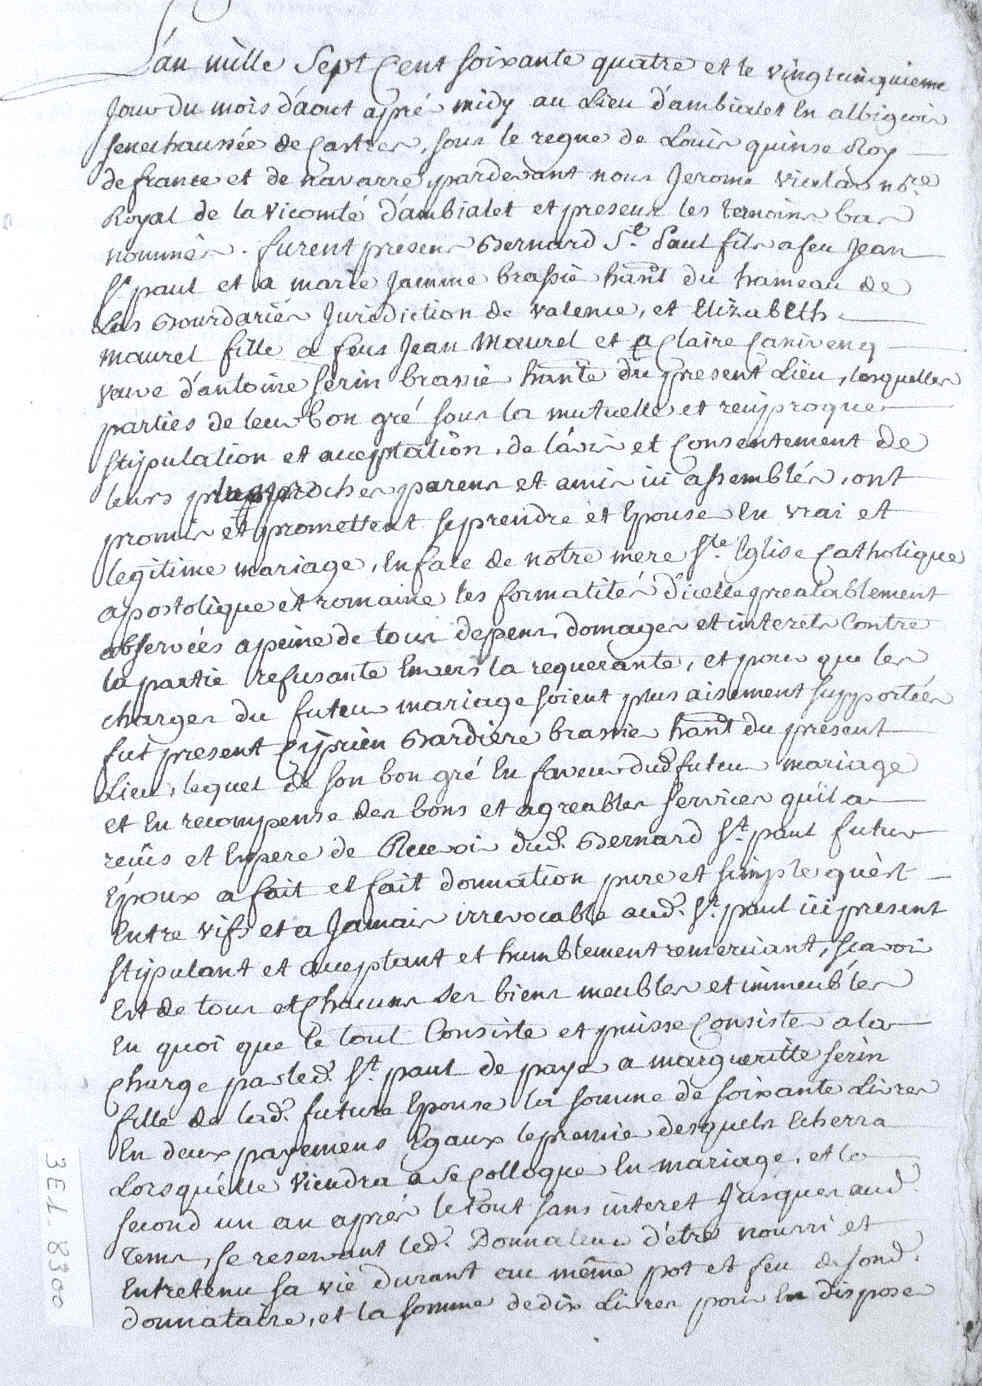 L'an mille Sept Cent soixante quatre et le vingt cinquieme
Jour du mois d'aout apré midy au Lieu d'ambialet En albigeois
senechaussée de Castres, sous le regne de Louis quinse Roy
de france et de navarre, pardevant nous Jerome nre
Royal de la vicomté d'ambialet et presens les temoins bas
nommés. furent presens Bernard St. Paul fils a feu Jean
St paul et a marie Jamme brassié hant du hameau de
Las Bourdariés Jurisdiction de valence, et Elizabeth
maurel fille a feus Jean Maurel et a Claire Canivenq
veuve d'antoine serin brassié hante du present Lieu, lesquelles
parties de leur bon gré sous la mutuelle et reciproque
stipulation et acceptation, de l'avis et Consentement de
leurs plus proches parens et amis ici assemblés, ont
promis et promettent se prendre et Epouser En vrai et
legitime mariage, En face de notre mere Ste. Eglise Catholique
apostolique et romaine les formalités d'icelle prealablement
observées a peine de tous depens, domages et interets Contre
la partie refusante Envers la requerante, et pour que les
charges du futeur mariage soient plus aisement supportées
fut present Ciprien Bardiere brassie hant du présent
Lieu, lequel de son bon gré En faveur dud futeur mariage
et En recompense des bons et agreables services qu'il a
reçûs et Espere de Recevoir dud. Bernard St. paul futur
Epoux a fait et fait donnation pure et simple qu'est
Entre vifs et a Jamais irrevocable aud. St. paul ici present
stipulant et acceptant et humblement remerciant, scavoir
Est de tous et Chacuns ses biens meubles et immeubles
En quoi que le tout Consiste et puisse Consister a la
Charge par led. St. paul de payer a margueritte serin
fille de lad. future Epouse la somme de soixante Livres
En deux payemens Egaux le premier desquels Echerra
Lorsqu'elle viendra a se Colloquer En mariage, et le
second un an aprés le tout sans interet Jusques aud
tems, se reservant led. Donnateur d'étre nourri et
Entretenu sa vie durant au même pot et feu de sond.
donnataire, et la somme de dix Livres pour En disposer
3E1.8300